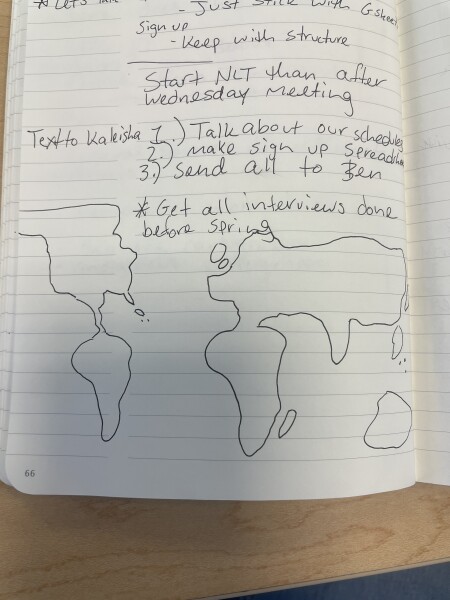 * Let's
- Just stick with Gsheet
Sign up
- Keep with structure
Start NLT than after
Wednesday meeting
Text to Kaleisha 1.) Talk about our schedules
2.) make sign up Spreadsh
3.) Send all to Ben
* Get all interviews done
before spring
66